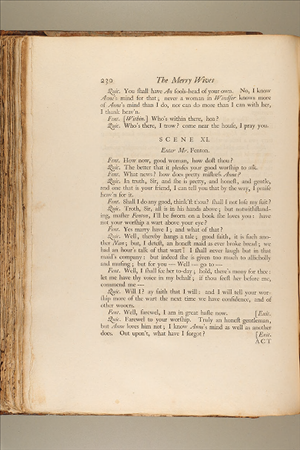 230 The Merry Wives
Quic. You shall have An fools-head of your own. No, I know
Anne's mind for that; never a woman in Windsor knows more
of Anne's mind than I do, nor can do more than I can with her,
I thank heav'n.
Fent. [Within.] Who's within there, hoa?
Quic. Who's there, I trow? come near the house, I pray you.
SCENE XI.
Enter Mr. Fenton.
Fent. How now, good woman, how dost thou?
Quic. The better that it pleases your good worship to ask.
Fent. What news? how does pretty mistress Anne?
Quic. In truth, Sir, and she is pretty, and honest, and gentle,
and one that is your friend, I can tell you that by the way, I praise
heav'n for it.
Fent. Shall I do any good, think'st thou? shall I not lose my suit?
Quic. Troth, Sir, all is in his hands above; but notwithstand-
ing, master Fenton, I'll be sworn on a book she loves you: have
not your worship a wart above your eye?
Fent. Yes marry have I; and what of that?
Quic. Well, thereby hangs a tale; good faith, it is such ano-
ther Nan; but, I detest, an honest maid as ever broke bread; we
had an hour's talk of that wart! I shall never laugh but in that
maid's company: but indeed she is given too much to allicholly
and musing; but for you — Well — go to —
Fent. Well, I shall see her to-day; hold, there's mony for thee:
let me have thy voice in my behalf; if thou seest her before me,
commend me —
Quic. Will I? ay faith that I will: and I will tell your wor-
ship more of the wart the next time we have confidence, and of
other wooers.
Fent. Well, farewel, I am in great haste now. [Exit.
Quic. Farewel to your worship. Truly an honest gentleman,
but Anne loves him not; I know Anne's mind as well as another
does. Out upon't, what have I forgot? [Exit.
ACT